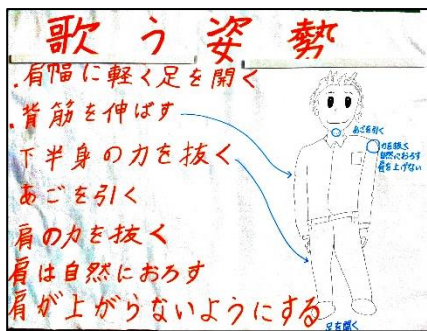 歌う姿勢
.肩幅に軽く足を開く
.背筋を伸ばす
下半身の力を抜く
あごを引く
肩の力を抜く
肩は自然におろす
肩が上がらないようにする
あごを引く
力を抜く
自然におろす
肩を上げない
足を開く